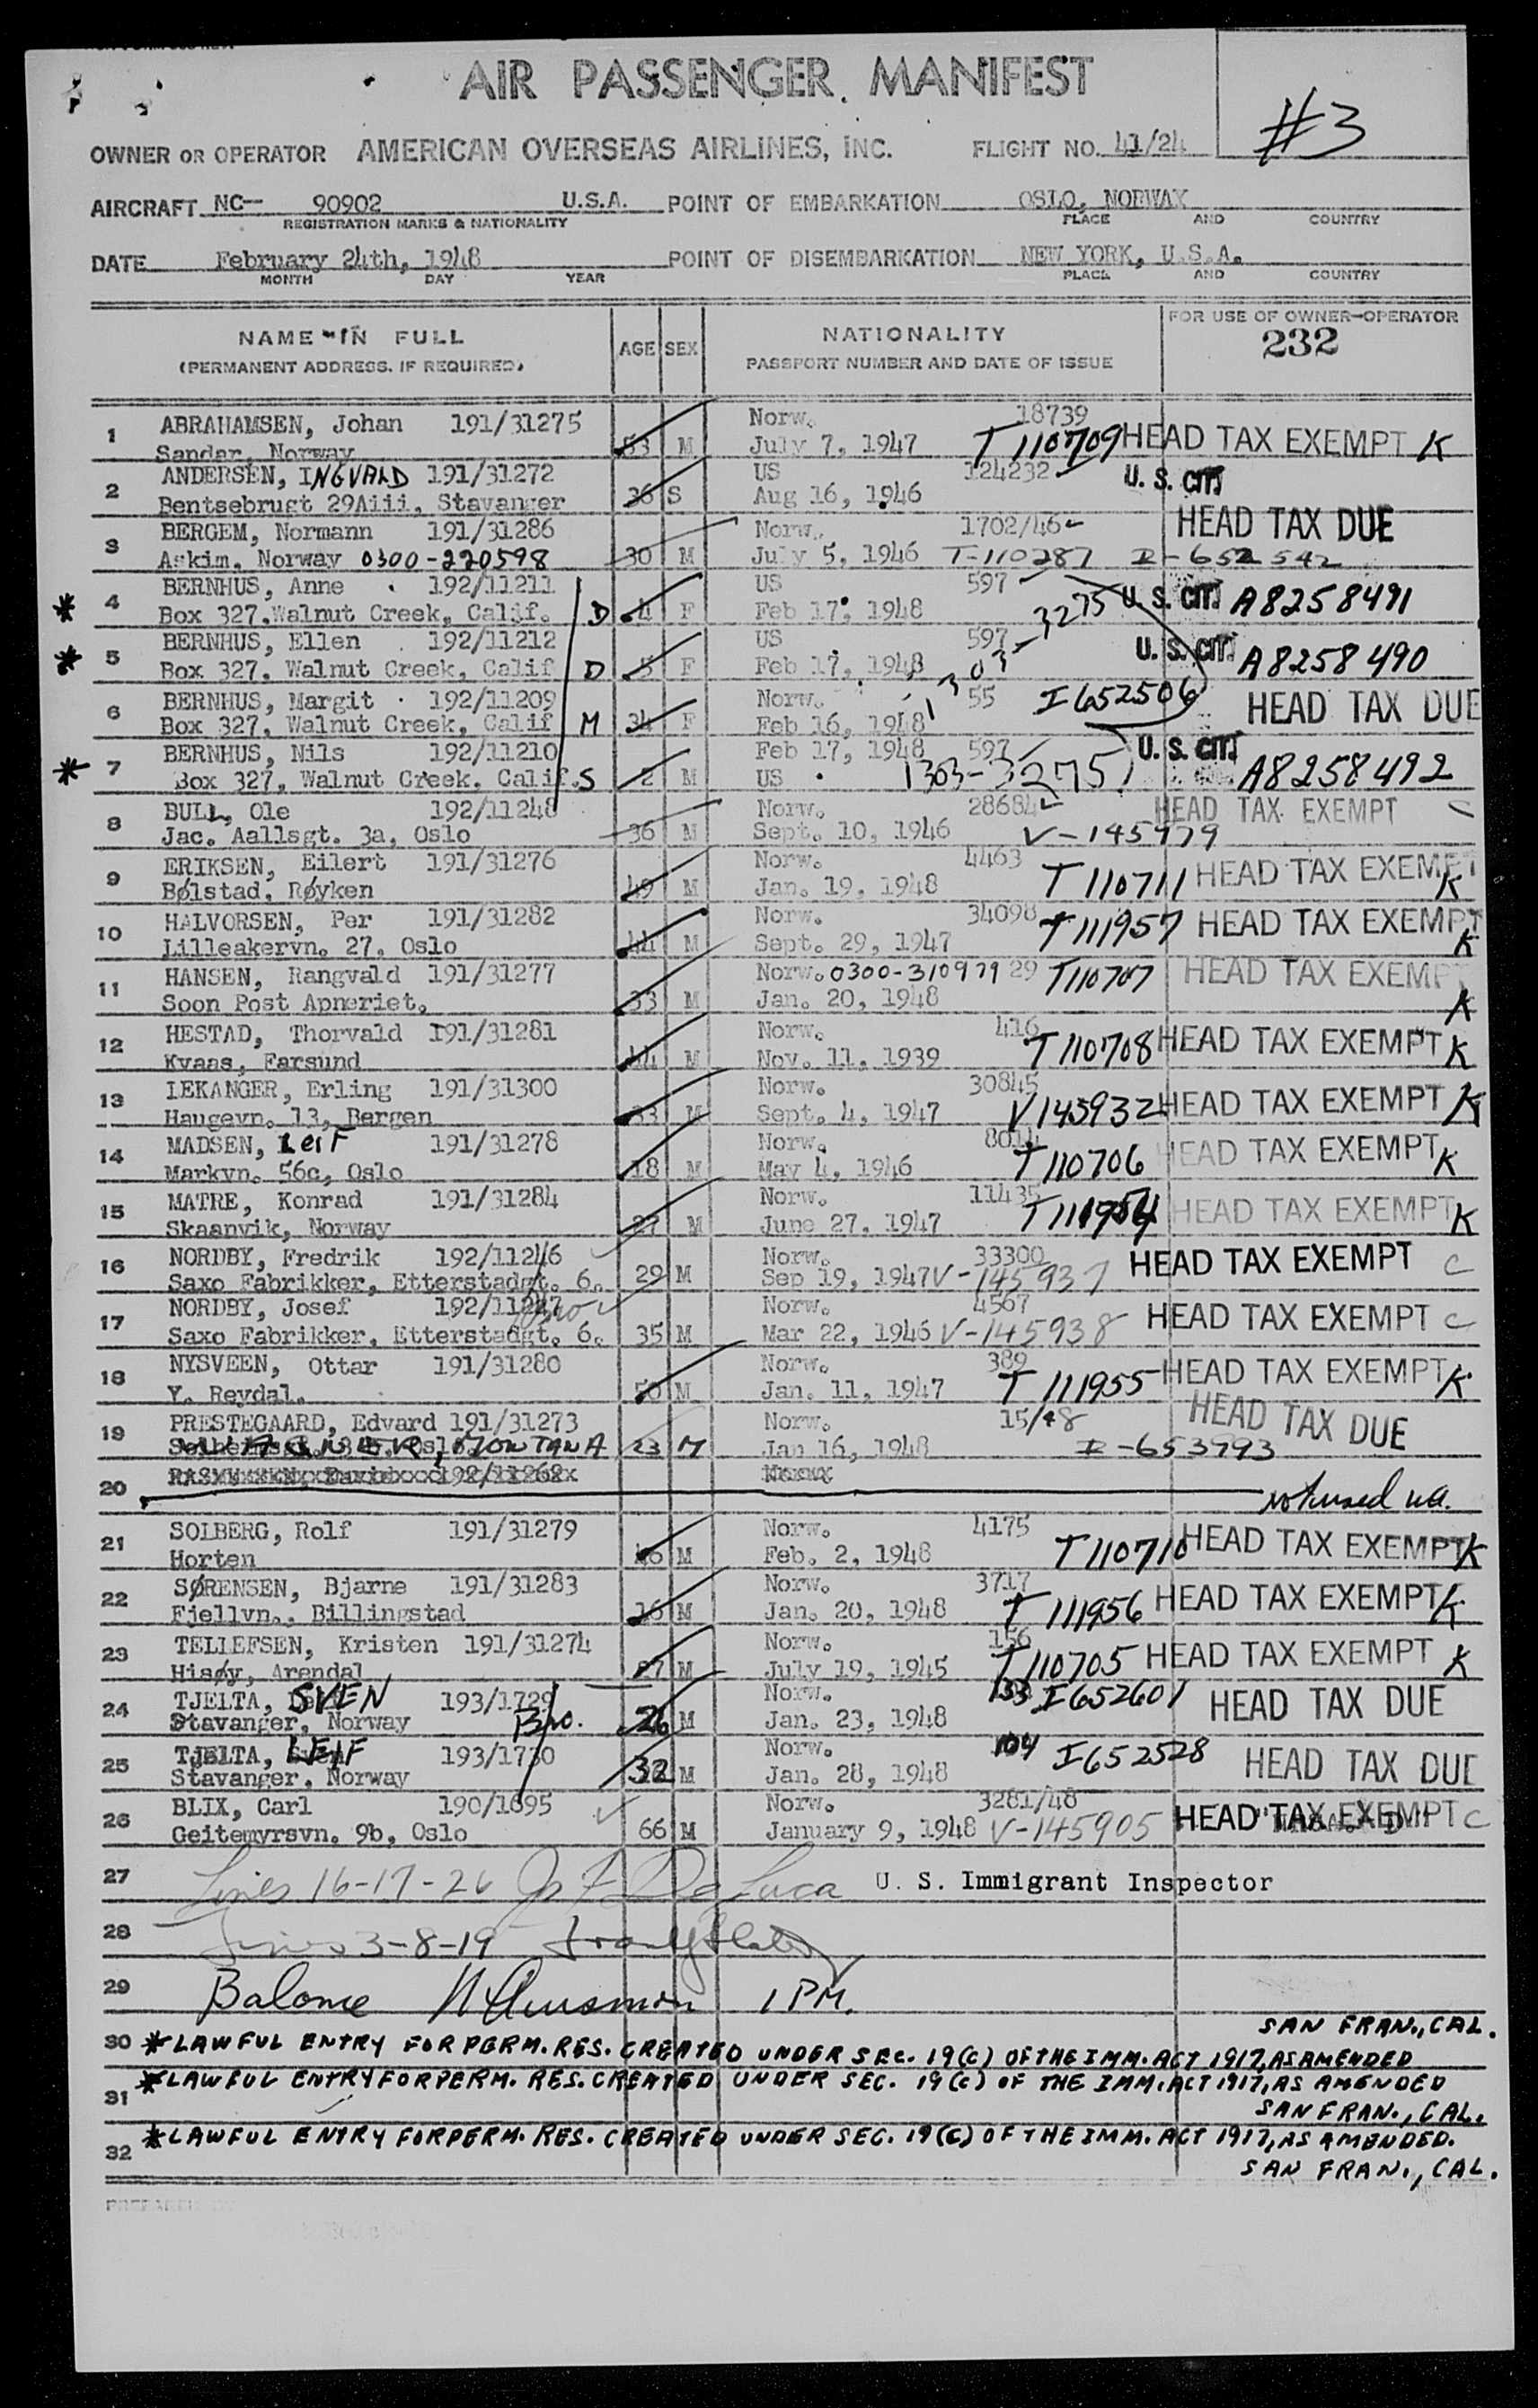 AIR PASSENGER MANIFEST
#3
OWNER OR OPERATOR AMERICAN OVERSEAS AIRLINES, INC. FLIGHT NO. 41/24
AIRCRAFT NC— 90902 U.S.A. POINT OF EMBARKATION OSLO, NORWAY
REGISTRATION MARKS & NATIONALITY PLACE AND COUNTRY
DATE February 24th, 1948 POINT OF DISEMBARKATION NEW YORK, U.S.A.
MONTH DAY YEAR PLACE AND COUNTRY
NAME IN FULL AGE SEX NATIONALITY FOR USE OF OWNER—OPERATOR
(PERMANENT ADDRESS, IF REQUIRED) PASSPORT NUMBER AND DATE OF ISSUE 232
1 ABRAHAMSEN, Johan 191/31275 Norw. 18739
Sandar, Norway 53 M July 7, 1947 T 110709 HEAD TAX EXEMPT K
2 ANDERSEN, INGVALD 191/31272 US 124232 U. S. CIT.
Bentsebrugt 29Aiii, Stavanger 36 S Aug 16, 1946
3 BERGEM, Normann 191/31286 Norw. 1702/46 HEAD TAX DUE
Askim, Norway 0300-220598 30 M July 5, 1946 T-110287 I-652542
* 4 BERNHUS, Anne 192/11211 US 597 U. S. CIT. A8258491
Box 327, Walnut Creek, Calif. D 4 F Feb 17, 1948
* 5 BERNHUS, Ellen 192/11212 US 597 1303-3275 U. S. CIT. A8258490
Box 327, Walnut Creek, Calif D 5 F Feb 17, 1948
6 BERNHUS, Margit 192/11209 Norw. 55 I652506 HEAD TAX DUE
Box 327, Walnut Creek, Calif M 34 F Feb 16, 1948
* 7 BERNHUS, Nils 192/11210 Feb 17, 1948 597 U. S. CIT.
Box 327, Walnut Creek, Calif. S 2 M US 1303-3275 A8258492
8 BULL, Ole 192/11248 Norw. 28684 HEAD TAX EXEMPT C
Jac. Aallsgt. 3a, Oslo 36 M Sept. 10, 1946 V-145979
9 ERIKSEN, Eilert 191/31276 Norw. 4463
Bølstad, Røyken 49 M Jan. 19, 1948 T 110711 HEAD TAX EXEMPT K
10 HALVORSEN, Per 191/31282 Norw. 34098
Lilleakervn. 27, Oslo 44 M Sept. 29, 1947 T 111957 HEAD TAX EXEMPT K
11 HANSEN, Rangvald 191/31277 Norw. 0300-310979 29 T110707 HEAD TAX EXEMPT
Soon Post Apneriet. 33 M Jan. 20, 1948 K
12 HESTAD, Thorvald 191/31281 Norw. 416
Kvaas, Farsund 44 M Nov. 11, 1939 T 110708 HEAD TAX EXEMPT K
13 LEKANGER, Erling 191/31300 Norw. 30845
Haugevn. 13, Bergen 33 M Sept. 4, 1947 V145932 HEAD TAX EXEMPT K
14 MADSEN, LeiF 191/31278 Norw.
Markvn. 56c, Oslo 18 M May 4, 1946 T 110706 HEAD TAX EXEMPT K
15 MATRE, Konrad 191/31284 Norw. 11435
Skaanvik, Norway 27 M June 27, 1947 T 111954 HEAD TAX EXEMPT K
16 NORDBY, Fredrik 192/11246 Norw. 33300 HEAD TAX EXEMPT C
Saxo Fabrikker, Etterstadgt. 6. 29 M Sep 19, 1947 V-145937
17 NORDBY, Josef 192/11247 Bro Norw. 4567 HEAD TAX EXEMPT C
Saxo Fabrikker, Etterstadgt. 6. 35 M Mar 22, 1946 V-145938
18 NYSVEEN, Ottar 191/31280 Norw. 389
Y. Reydal. 50 M Jan. 11, 1947 T 111955 HEAD TAX EXEMPT K
19 PRESTEGAARD, Edvard 191/31273 Norw. 15/48 HEAD TAX DUE
MONTANA 23 M Jan 16, 1948 I-653793
20 192/11262
not used
21 SOLBERG, Rolf 191/31279 Norw. 4175
Horten 46 M Feb. 2, 1948 T110710 HEAD TAX EXEMPT K
22 SØRENSEN, Bjarne 191/31283 Norw. 3717
Fjellvn., Billingstad 16 M Jan. 20, 1948 T 111956 HEAD TAX EXEMPT K
23 TELLEFSEN, Kristen 191/31274 Norw. 156
Hisøy, Arendal 27 M July 19, 1945 T110705 HEAD TAX EXEMPT K
24 TJELTA, SVEN 193/1729 Norw. 133 I652601 HEAD TAX DUE
Stavanger, Norway Bro. 26 M Jan. 23, 1948
25 TJELTA, LEIF 193/1730 Norw. 104 I652528 HEAD TAX DUE
Stavanger, Norway 32 M Jan. 28, 1948
26 BLIX, Carl 190/1695 Norw. 3281/48 HEAD TAX EXEMPT C
Geitemyrsvn. 9b, Oslo 66 M January 9, 1948 V-145905
27 Lines 16-17-26 De Luca U. S. Immigrant Inspector
28 Lines 3-8-19
29 Balance 1 PM.
SAN FRAN., CAL.
30 *LAWFUL ENTRY FOR PERM. RES. CREATED UNDER SEC. 19(C) OF THE IMM. ACT 1917, AS AMENDED
31 *LAWFUL ENTRY FOR PERM. RES. CREATED UNDER SEC. 19(C) OF THE IMM. ACT 1917, AS AMENDED
SAN FRAN., CAL.
32 *LAWFUL ENTRY FOR PERM. RES. CREATED UNDER SEC. 19(C) OF THE IMM. ACT 1917, AS AMENDED.
SAN FRAN., CAL.